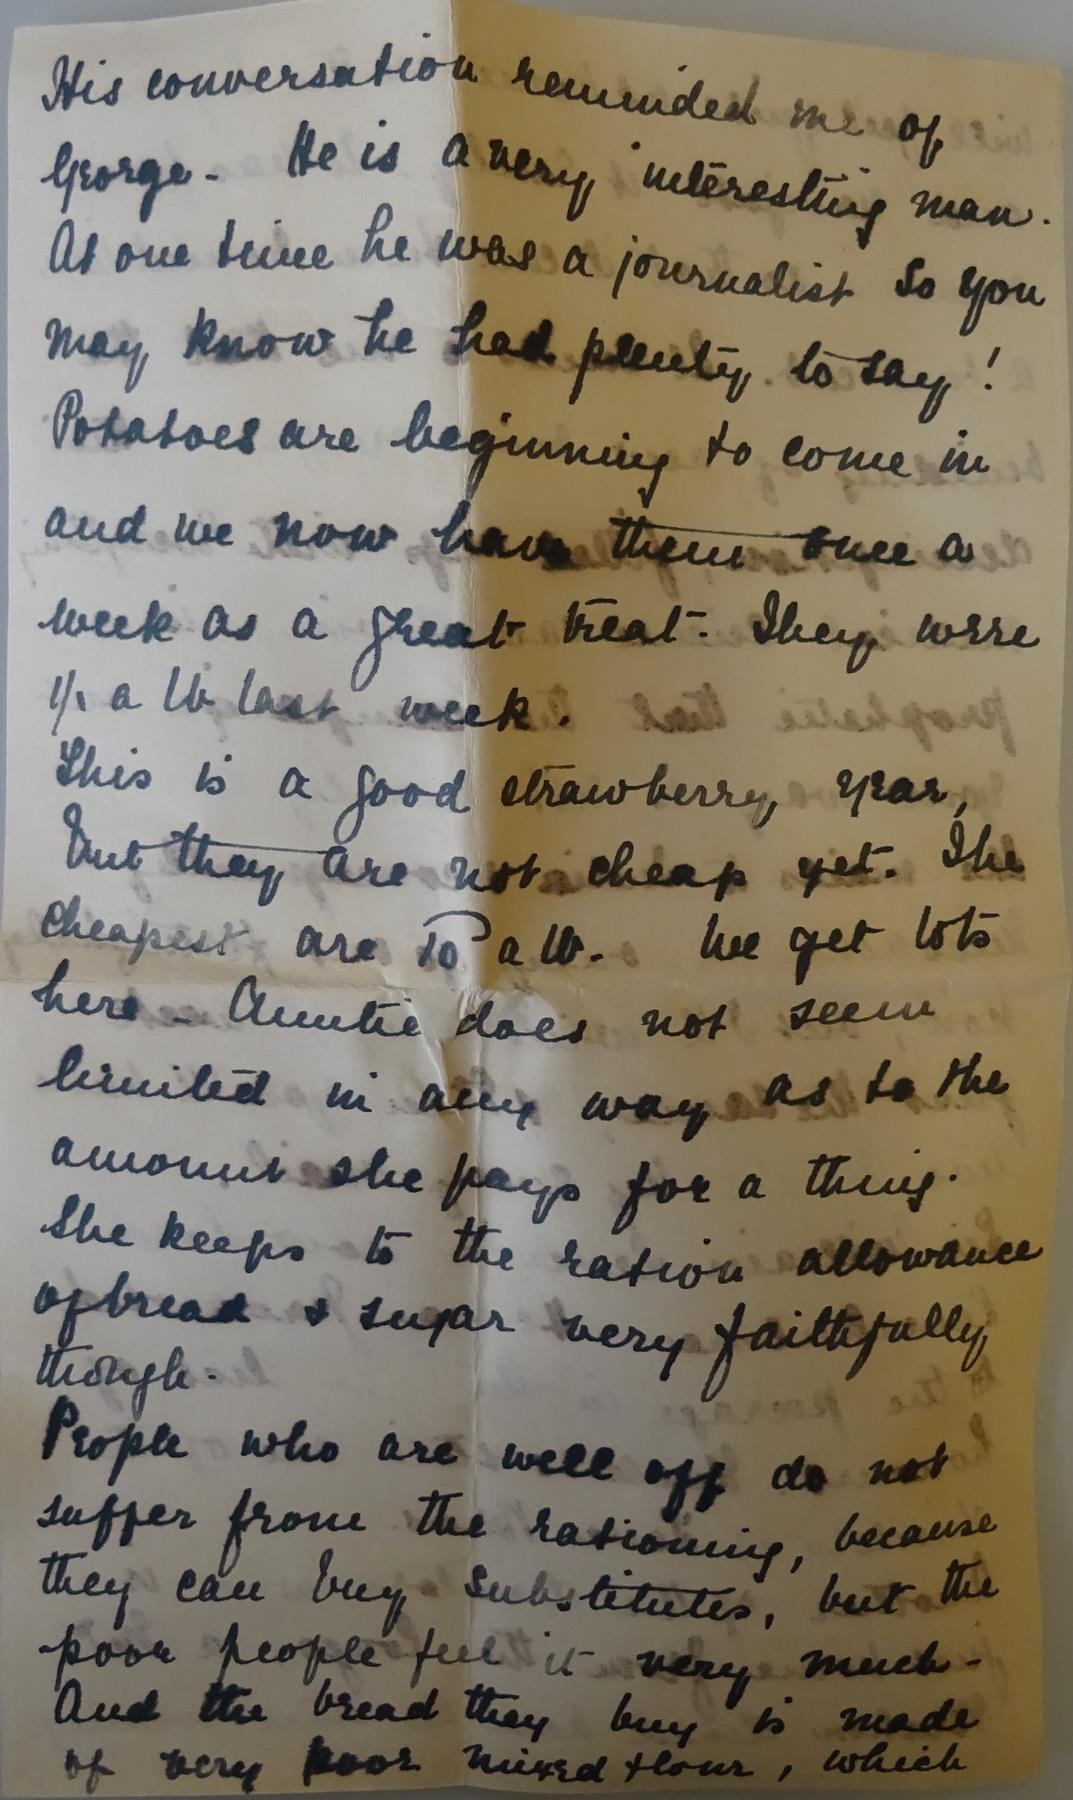 His conversation reminded me of
George - He is a very interesting man.
At one time he was a journalist so you
may know he had plenty to say!
Potatoes are beginning to come in
and we now have them once a
week as a great treat. They were
1/- a lb last week.
This is a good strawberry year,
but they are not cheap yet. The
cheapest are 10ᵈ a lb. We get lots
here - Auntie does not seem
limited in any way as to the
amount she pays for a thing.
She keeps to the ration allowance
of bread & sugar very faithfully
though.
People who are well off do not
suffer from the rationing, because
they can buy substitutes, but the
poor people feel it very much -
And the bread they buy is made
of very poor mixed flour, which